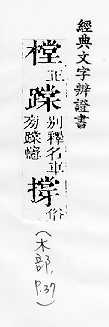 經典文字辨證書
樘 正
別釋名車
幰
撑 俗
(木部, P.37)